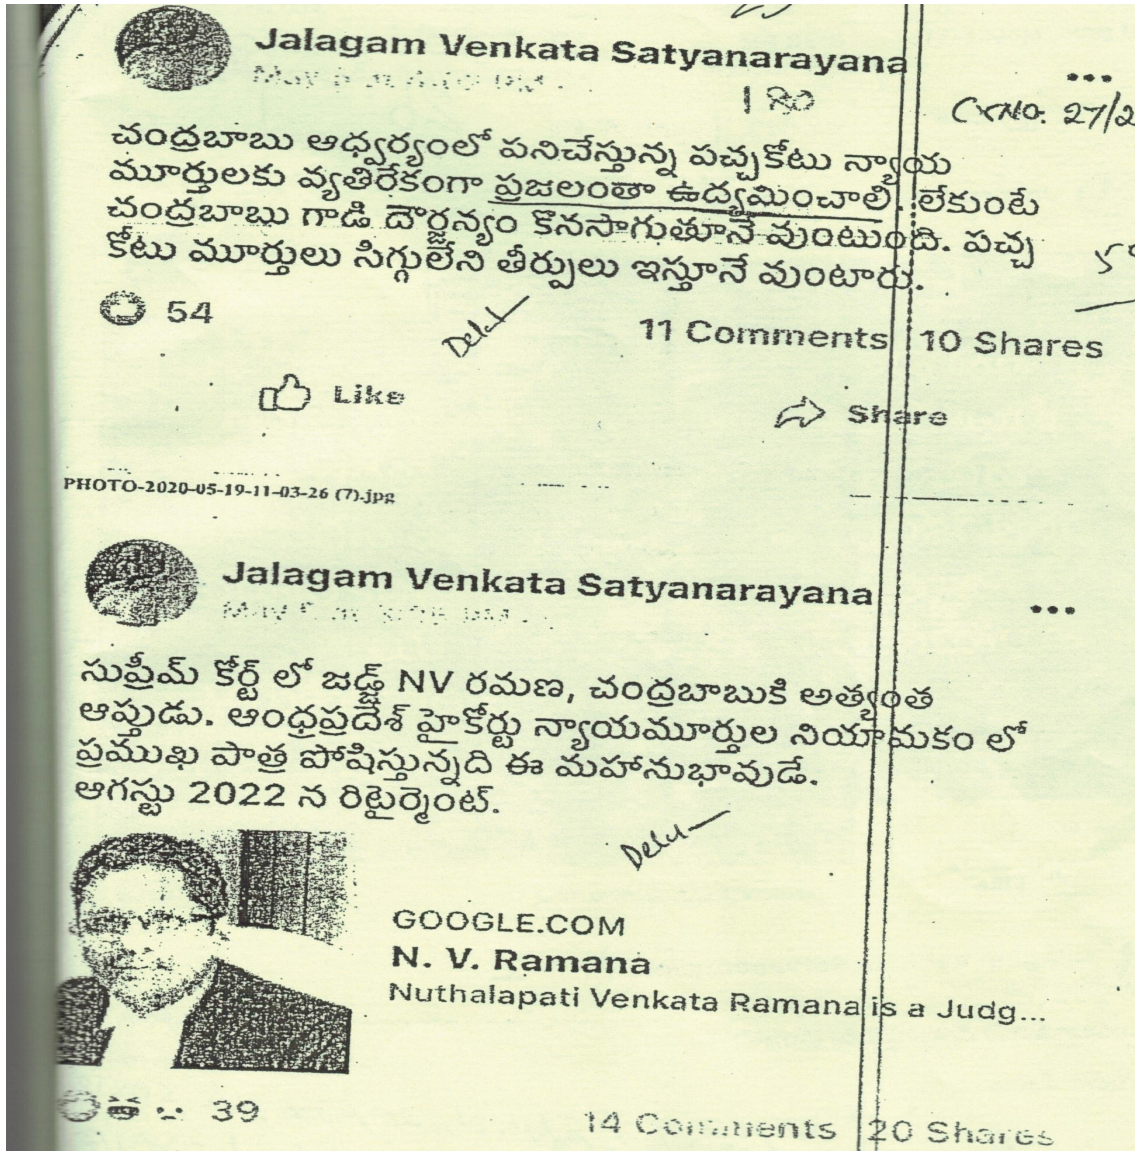 Jalagam Venkata Satyanarayana
180
చంద్రబాబు ఆధ్వర్యంలో పనిచేస్తున్న పచ్చకోటు న్యాయ
మూర్తులకు వ్యతిరేకంగా ప్రజలంతా ఉద్యమించాలి. లేకుంటే
చంద్రబాబు గాడి దౌర్జన్యం కొనసాగుతూనే వుంటుంది. పచ్చ
కోటు మూర్తులు సిగ్గులేని తీర్పులు ఇస్తూనే వుంటారు.
54
11 Comments 10 Shares
Like
Share
PHOTO-2020-05-19-11-03-26 (7).jpg
Jalagam Venkata Satyanarayana
సుప్రీమ్ కోర్ట్ లో జడ్జ్ NV రమణ, చంద్రబాబుకి అత్యంత
ఆప్తుడు. ఆంధ్రప్రదేశ్ హైకోర్టు న్యాయమూర్తుల నియామకం లో
ప్రముఖ పాత్ర పోషిస్తున్నది ఈ మహానుభావుడే.
ఆగస్టు 2022 న రిటైర్మెంట్.
GOOGLE.COM
N. V. Ramana
Nuthalapati Venkata Ramana is a Judg...
39
14 Comments 20 Shares